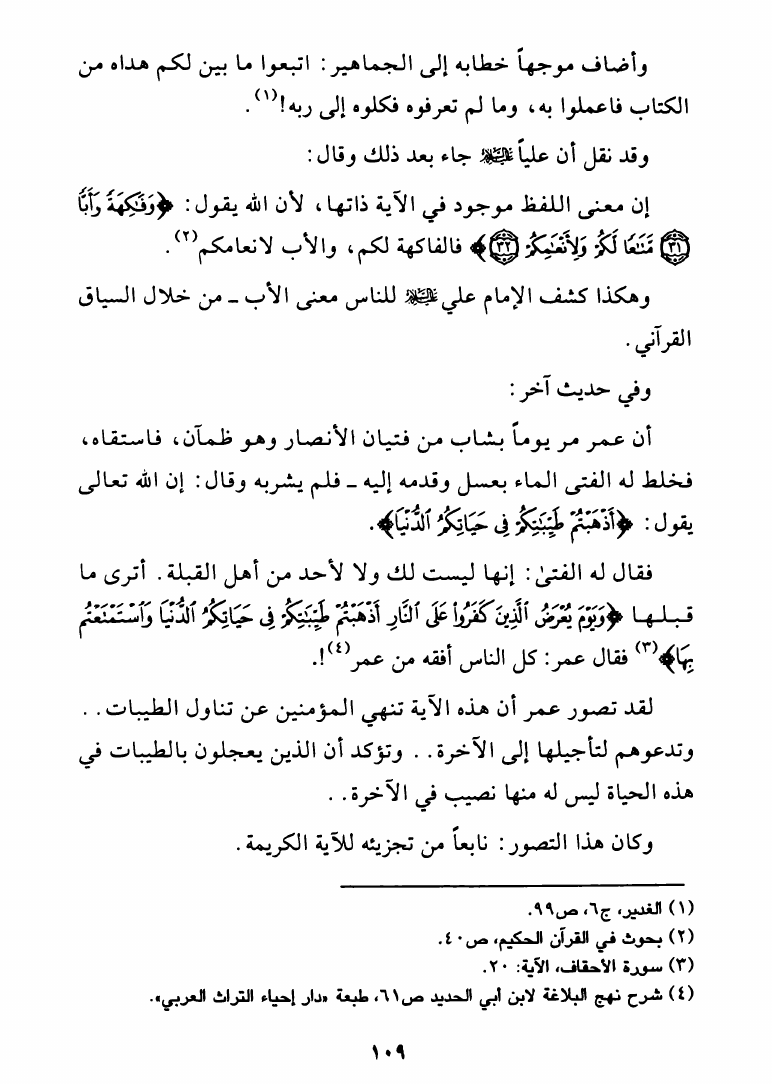 وأضاف موجهاً خطابه إلى الجماهير: اتبعوا ما بين لكم هداه من
الكتاب فاعملوا به، وما لم تعرفوه فكلوه إلى ربه!(١).
وقد نقل أن علياً عليه السلام جاء بعد ذلك وقال:
إن معنى اللفظ موجود في الآية ذاتها، لأن الله يقول: ﴿وَفَٰكِهَةً وَأَبًّا
﴿٣١﴾ مَّتَٰعًا لَّكُمْ وَلِأَنْعَٰمِكُمْ ﴿٣٢﴾﴾ فالفاكهة لكم، والأب لانعامكم(٢).
وهكذا كشف الإمام علي عليه السلام للناس معنى الأب ـ من خلال السياق
القرآني.
وفي حديث آخر:
أن عمر مر يوماً بشاب من فتيان الأنصار وهو ظمآن، فاستقاه،
فخلط له الفتى الماء بعسل وقدمه إليه ـ فلم يشربه وقال: إن الله تعالى
يقول: ﴿أَذْهَبْتُمْ طَيِّبَٰتِكُمْ فِى حَيَاتِكُمُ ٱلدُّنْيَا﴾.
فقال له الفتىٰ: إنها ليست لك ولا لأحد من أهل القبلة. أترى ما
قبلها ﴿وَيَوْمَ يُعْرَضُ ٱلَّذِينَ كَفَرُوا۟ عَلَى ٱلنَّارِ أَذْهَبْتُمْ طَيِّبَٰتِكُمْ فِى حَيَاتِكُمُ ٱلدُّنْيَا وَٱسْتَمْتَعْتُم
بِهَا﴾(٣) فقال عمر: كل الناس أفقه من عمر(٤)!.
لقد تصور عمر أن هذه الآية تنهي المؤمنين عن تناول الطيبات..
وتدعوهم لتأجيلها إلى الآخرة.. وتؤكد أن الذين يعجلون بالطيبات في
هذه الحياة ليس له منها نصيب في الآخرة..
وكان هذا التصور: نابعاً من تجزيئه للآية الكريمة.
(١) الغدير، ج٦، ص٩٩.
(٢) بحوث في القرآن الحكيم، ص٤٠.
(٣) سورة الأحقاف، الآية: ٢٠.
(٤) شرح نهج البلاغة لابن أبي الحديد ص٦١، طبعة «دار إحياء التراث العربي».
١٠٩